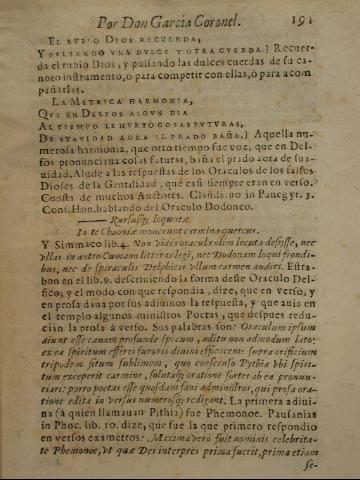 Por Don Garcia Coronel. 191
EL RVBIO DIOS RECVERDA,
Y PVLSANDO VNA DVLCE Y OTRA CVERDA.] Recuer-
da el rubio Dios, y pulsando las dulces cuerdas de su ca-
noro instrumento, o para competir con ellas, ò para acom
pañarlas.
LA METRICA HARMONIA,
QVE EN DELFOS ALGVN DIA
AL TIEMPO LE HVRTÒ COSAS FVTVRAS,
DE SVAVIDAD AORA EL PRADO BAÑA.] Aquella nu-
merosa harmonia, que otro tiempo fue voz, que en Del-
fos pronunciaua cosas faturas, baña el prado aora de sua-
uidad. Alude a las respuestas de los Oraculos de los falsos
Dioses de la Gentilidad, que casi siempre eran en verso.
Consta de muchos Auctores. Claudiano in Panegyr. 3.
Cons. Hon. hablando del Oraculo Dodoneo.
Rursusq; loquutæ
In te Chaoniæ mouerunt carmina quercus.
Y Simmaco lib. 4. Non vides oracula olim locuta desijsse, nec
vllas in antro Cumano litteras legi, nec Dodonam loqui frondi-
bus, nec de spiraculis Delphicis vllum carmen audiri. Estra-
bon en el lib. 9. descriuiendo la forma deste Oraculo Del-
fico, y el modo con que respondia, dize, que en verso, y
en prosa daua por sus adiuinos la respuesta, y que auia en
el templo algunos ministros Poetas, que despues redu-
cian la prosa à verso. Sus palabras son: Oraculum ipsum
aiunt esse cauam profunde specum, aditu non admodum lato;
ex ea spiritum efferri furoris diuini efficacem: supra orificium
tripodem situm sublimem, quo conscenso Pythia vbi spiri-
tum exceperit carmine, solutaq; oratione sortes ab ea pronun-
ciari: porro poetas esse quosdam fani administros, qui prosa ora-
tione edita in versus numerosq; redigant. La primera adiui-
na (à quien llamauan Pithia) fue Phemonoe. Pausanias
in Phoc. lib. 10. dize, que fue la que primero respondio
en versos exametros: Maxima verò fuit nominis celebrita-
te Phemonoe, vt quæ Dei interpres prima fuerit, prima etiam
se-